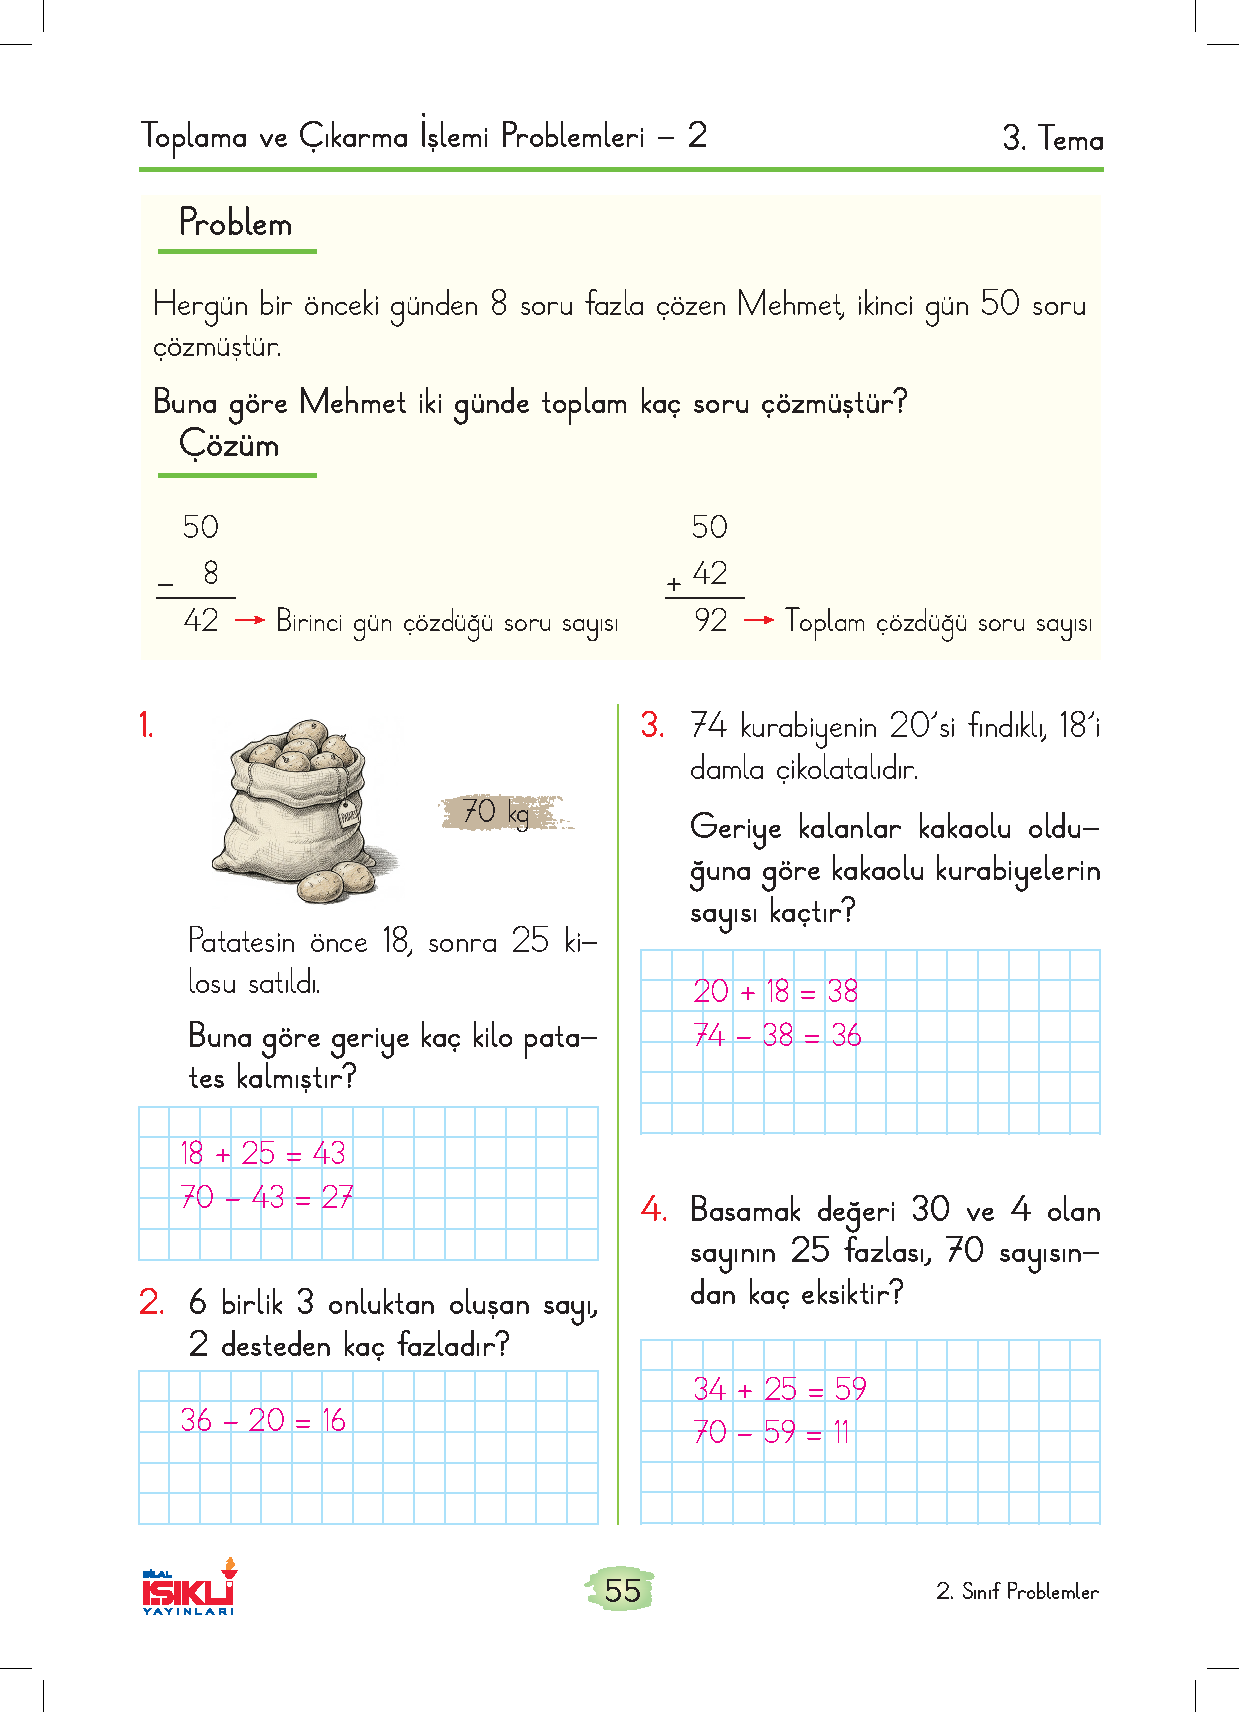 Toplama ve Çıkarma İşlemi Problemleri – 2
3. Tema
Problem
Hergün bir önceki günden 8 soru fazla çözen Mehmet, ikinci gün 50 soru
çözmüştür.
Buna göre Mehmet iki günde toplam kaç soru çözmüştür?
Çözüm
50
– 8
42 → Birinci gün çözdüğü soru sayısı
50
+ 42
92 → Toplam çözdüğü soru sayısı
1.
70 kg
Patatesin önce 18, sonra 25 ki–
losu satıldı.
Buna göre geriye kaç kilo pata–
tes kalmıştır?
18 + 25 = 43
70 – 43 = 27
2. 6 birlik 3 onluktan oluşan sayı,
2 desteden kaç fazladır?
36 – 20 = 16
3. 74 kurabiyenin 20'si fındıklı, 18'i
damla çikolatalıdır.
Geriye kalanlar kakaolu oldu–
ğuna göre kakaolu kurabiyelerin
sayısı kaçtır?
20 + 18 = 38
74 – 38 = 36
4. Basamak değeri 30 ve 4 olan
sayının 25 fazlası, 70 sayısın–
dan kaç eksiktir?
34 + 25 = 59
70 – 59 = 11
BİLAL
IŞIKLI
YAYINLARI
55
2. Sınıf Problemler